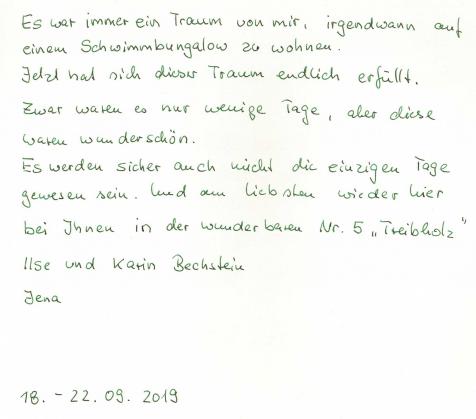 Es war immer ein Traum von mir, irgendwann auf
einem Schwimmbungalow zu wohnen.
Jetzt hat sich dieser Traum endlich erfüllt.
Zwar waren es nur wenige Tage, aber diese
waren wunderschön.
Es werden sicher auch nicht die einzigen Tage
gewesen sein. Und am liebsten wieder hier
bei Ihnen in der wunderbaren Nr. 5 „Treibholz"
Ilse und Karin Bechstein
Jena
18. - 22. 09. 2019